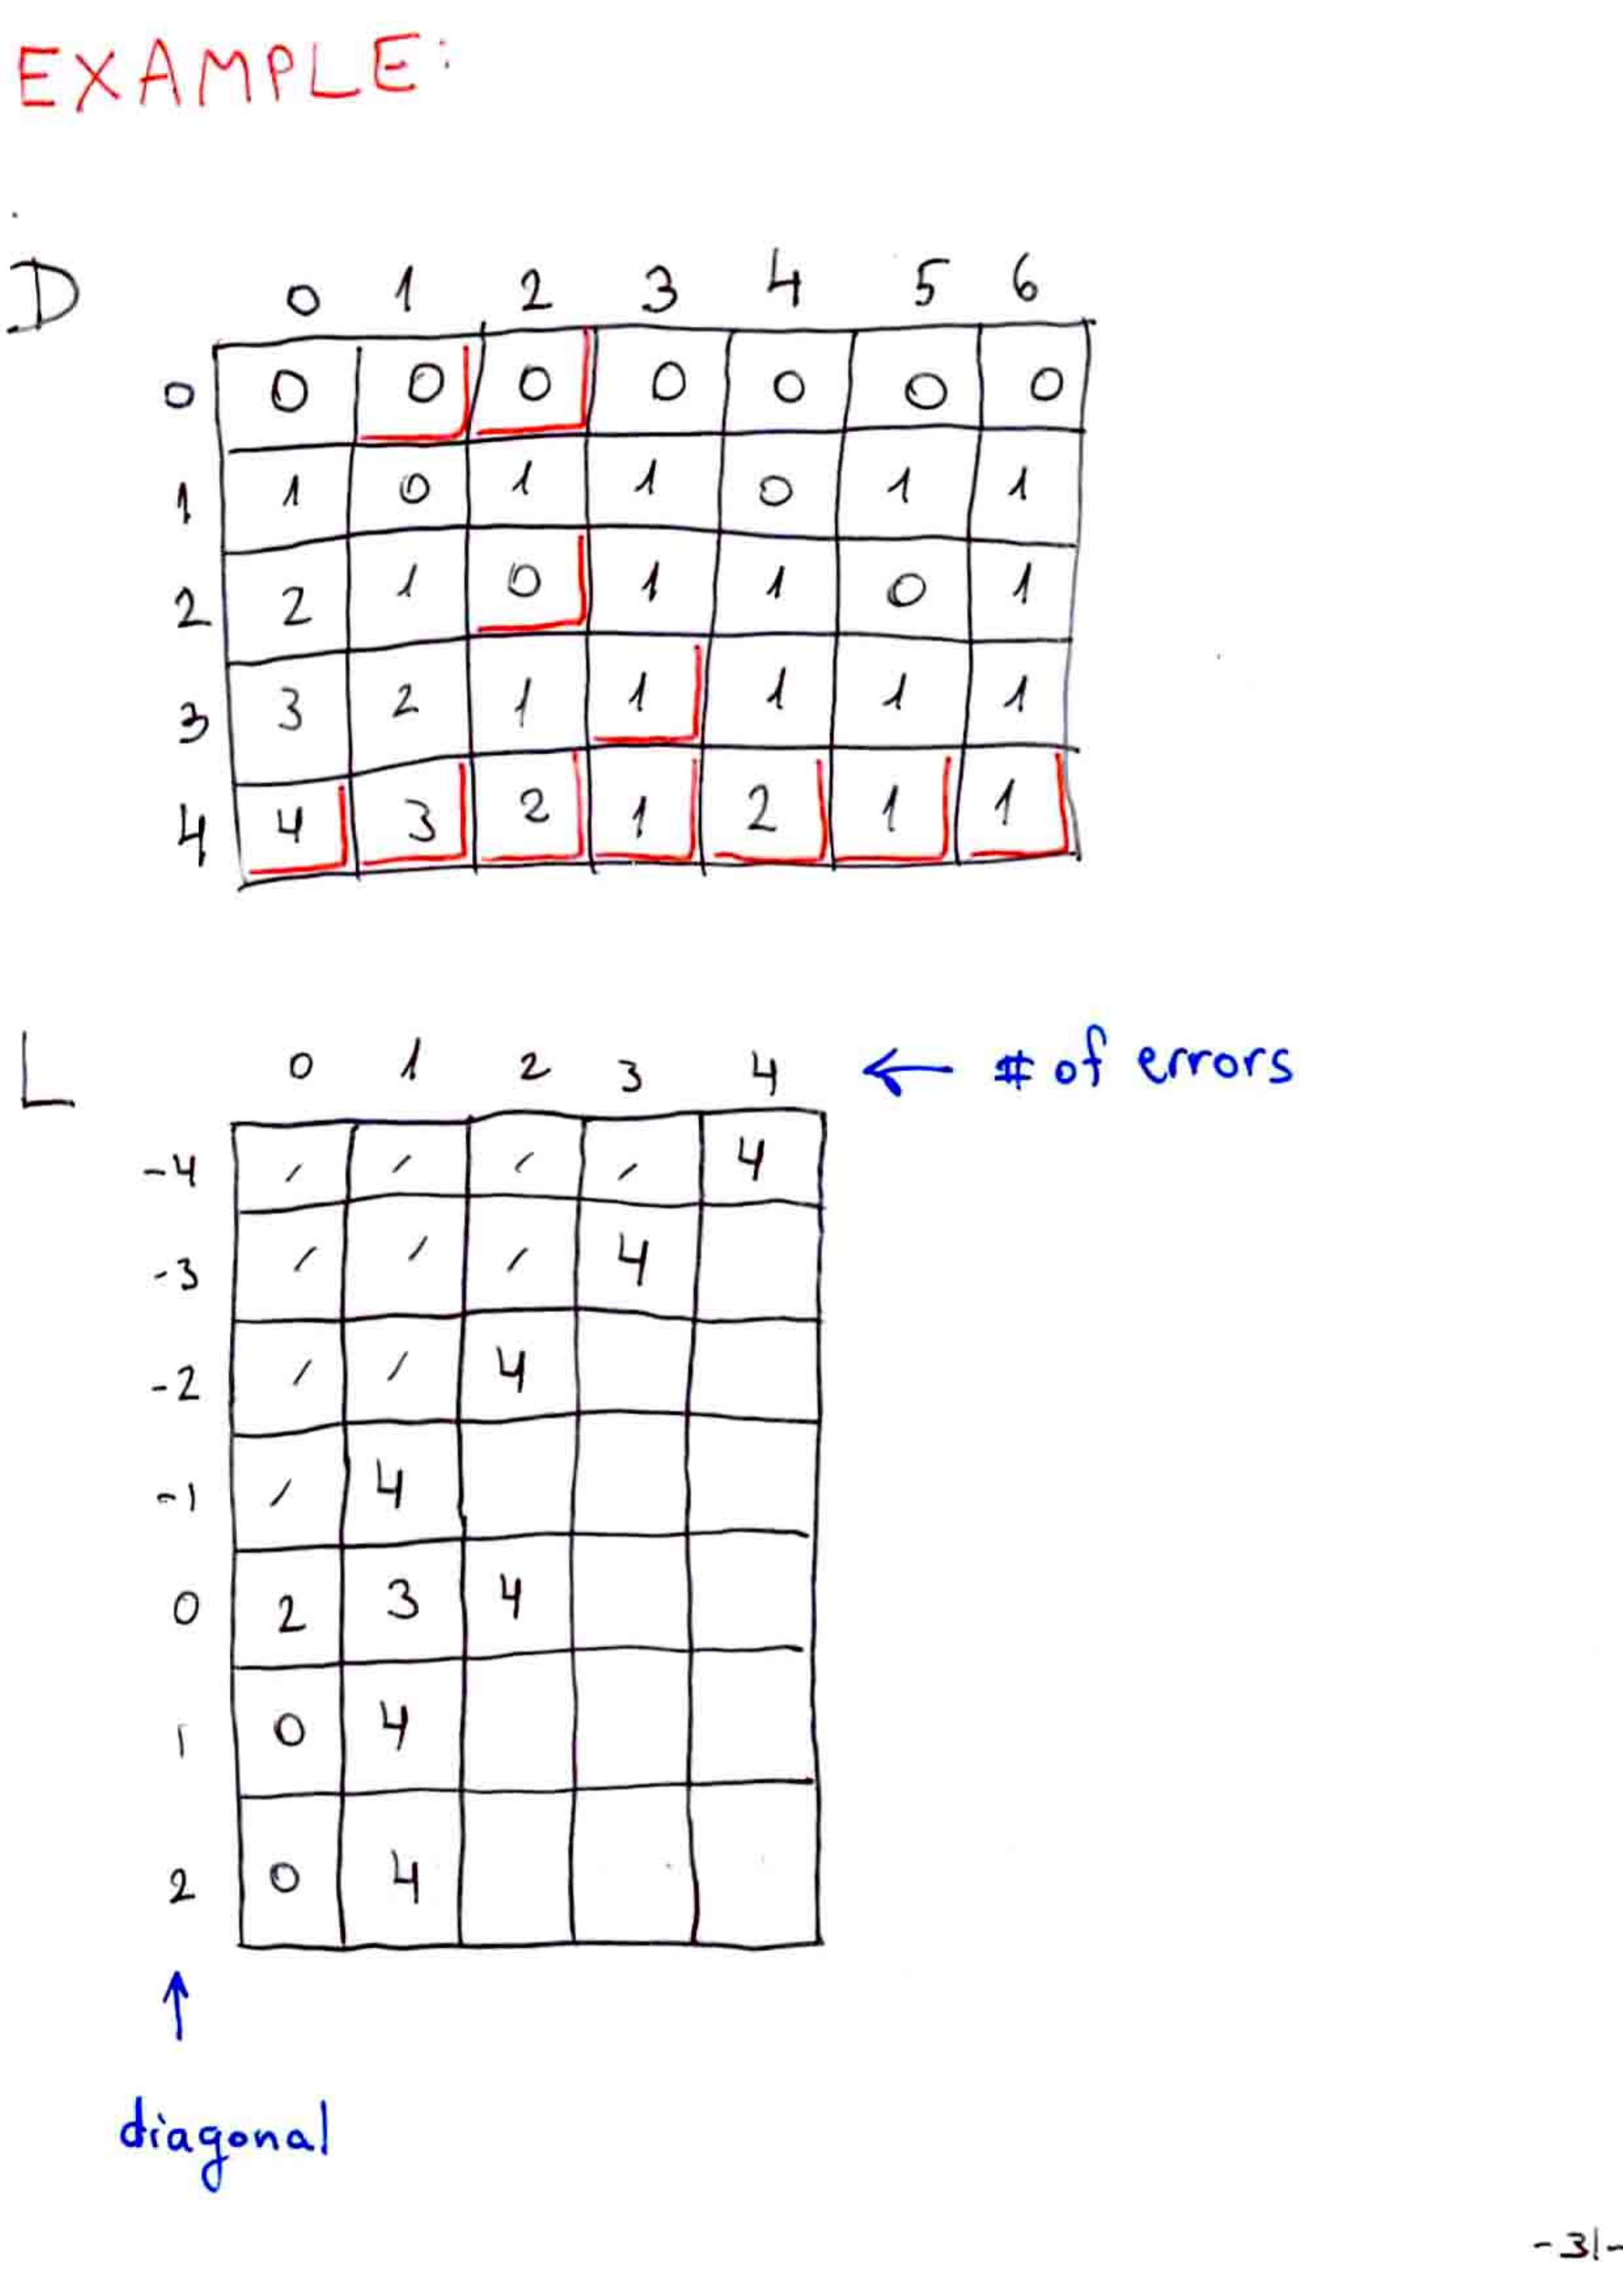 EXAMPLE:
D 0 1 2 3 4 5 6
0 0 0 0 0 0 0 0
1 1 0 1 1 0 1 1
2 2 1 0 1 1 0 1
3 3 2 1 1 1 1 1
4 4 3 2 1 2 1 1
L 0 1 2 3 4 ← # of errors
-4 / / / / 4
-3 / / / 4
-2 / / 4
-1 / 4
0 2 3 4
1 0 4
2 0 4
↑
diagonal
-31-